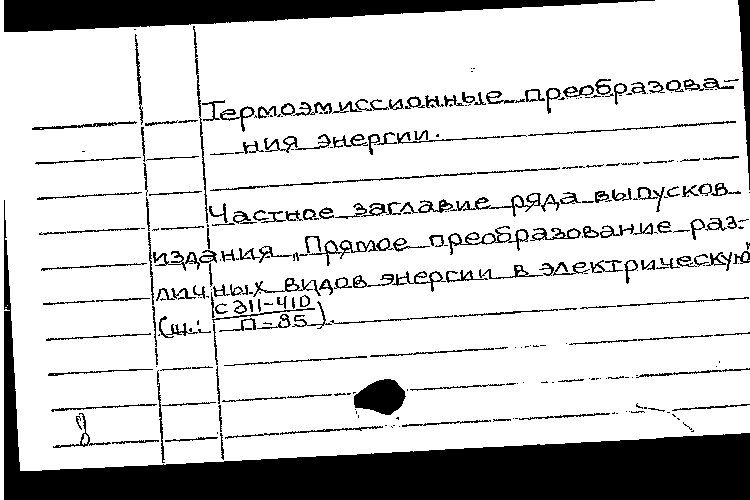 Термоэмиссионные преобразова-
ния энергии.
Частное заглавие ряда выпусков
издания „Прямое преобразование раз-
личных видов энергии в электрическую"
(ш.: С Э11-410
П-85).
8